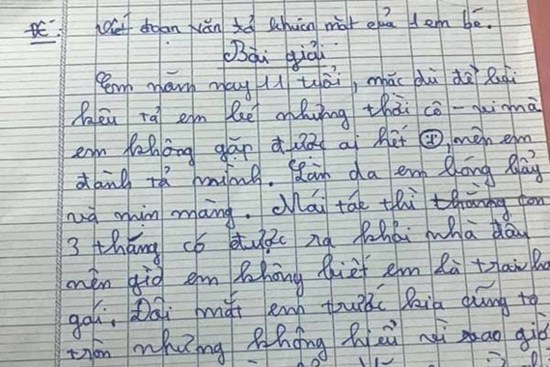 ĐỀ: Viết đoạn văn tả khuôn mặt của 1 em bé.
Bài giải
Em năm nay 11 tuổi, mặc dù đề bài
kêu tả em bé nhưng thời cô-vi mà
em không gặp được ai hết, nên em
đành tả mình. Làn da em bóng bẩy
và mịn màng. Mái tóc thì
3 tháng có được ra khỏi nhà đâu
nên giờ em không biết em là trai ha
gái. Đôi mắt em trước kia cũng to
tròn nhưng không hiểu vì sao giờ